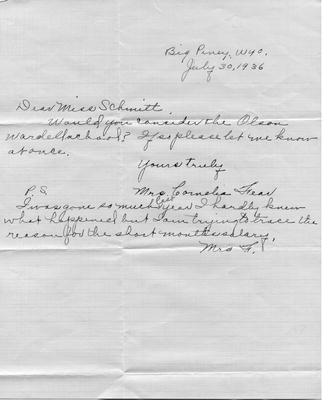 Big Piney, Wyo.
July 30, 1936
Dear Miss Schmitt
Would you consider the Olson
Wardell school? If so please let me know
at once.
Yours truly
Mrs Cornelia Fear
P.S.
I was gone so much last year I hardly knew
what happened but I am trying to trace the
reason for the short month's salary.
Mrs F.